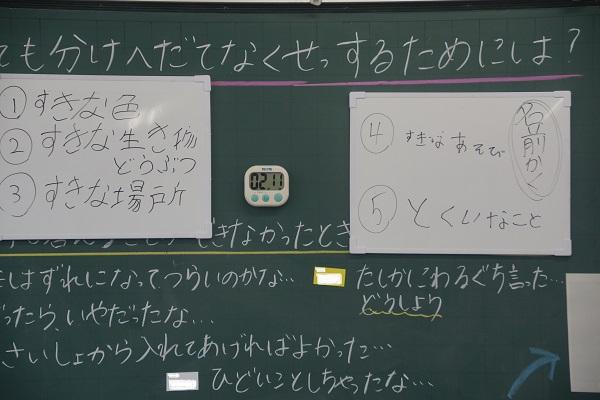 ても分けへだてなくせっするためには?
①すきな色
②すきな生き物
どうぶつ
③すきな場戸斤
02 11
名前かく
④すきなあそび
⑤とくいなこと
できなかったとき
はずれになって、つらいのかな…
たしかにわるぐち言った…
どうしよう
ったら、いやだったな…
さいしょから入れてあげればよかった…
ひどいことしちゃったな…